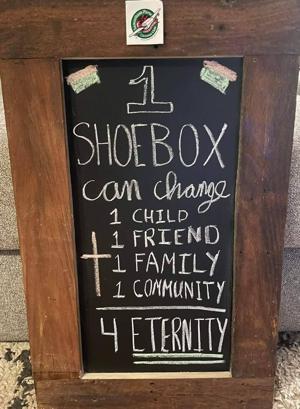 1
SHOEBOX
can change
1 CHILD
1 FRIEND
1 FAMILY
1 COMMUNITY
4 ETERNITY